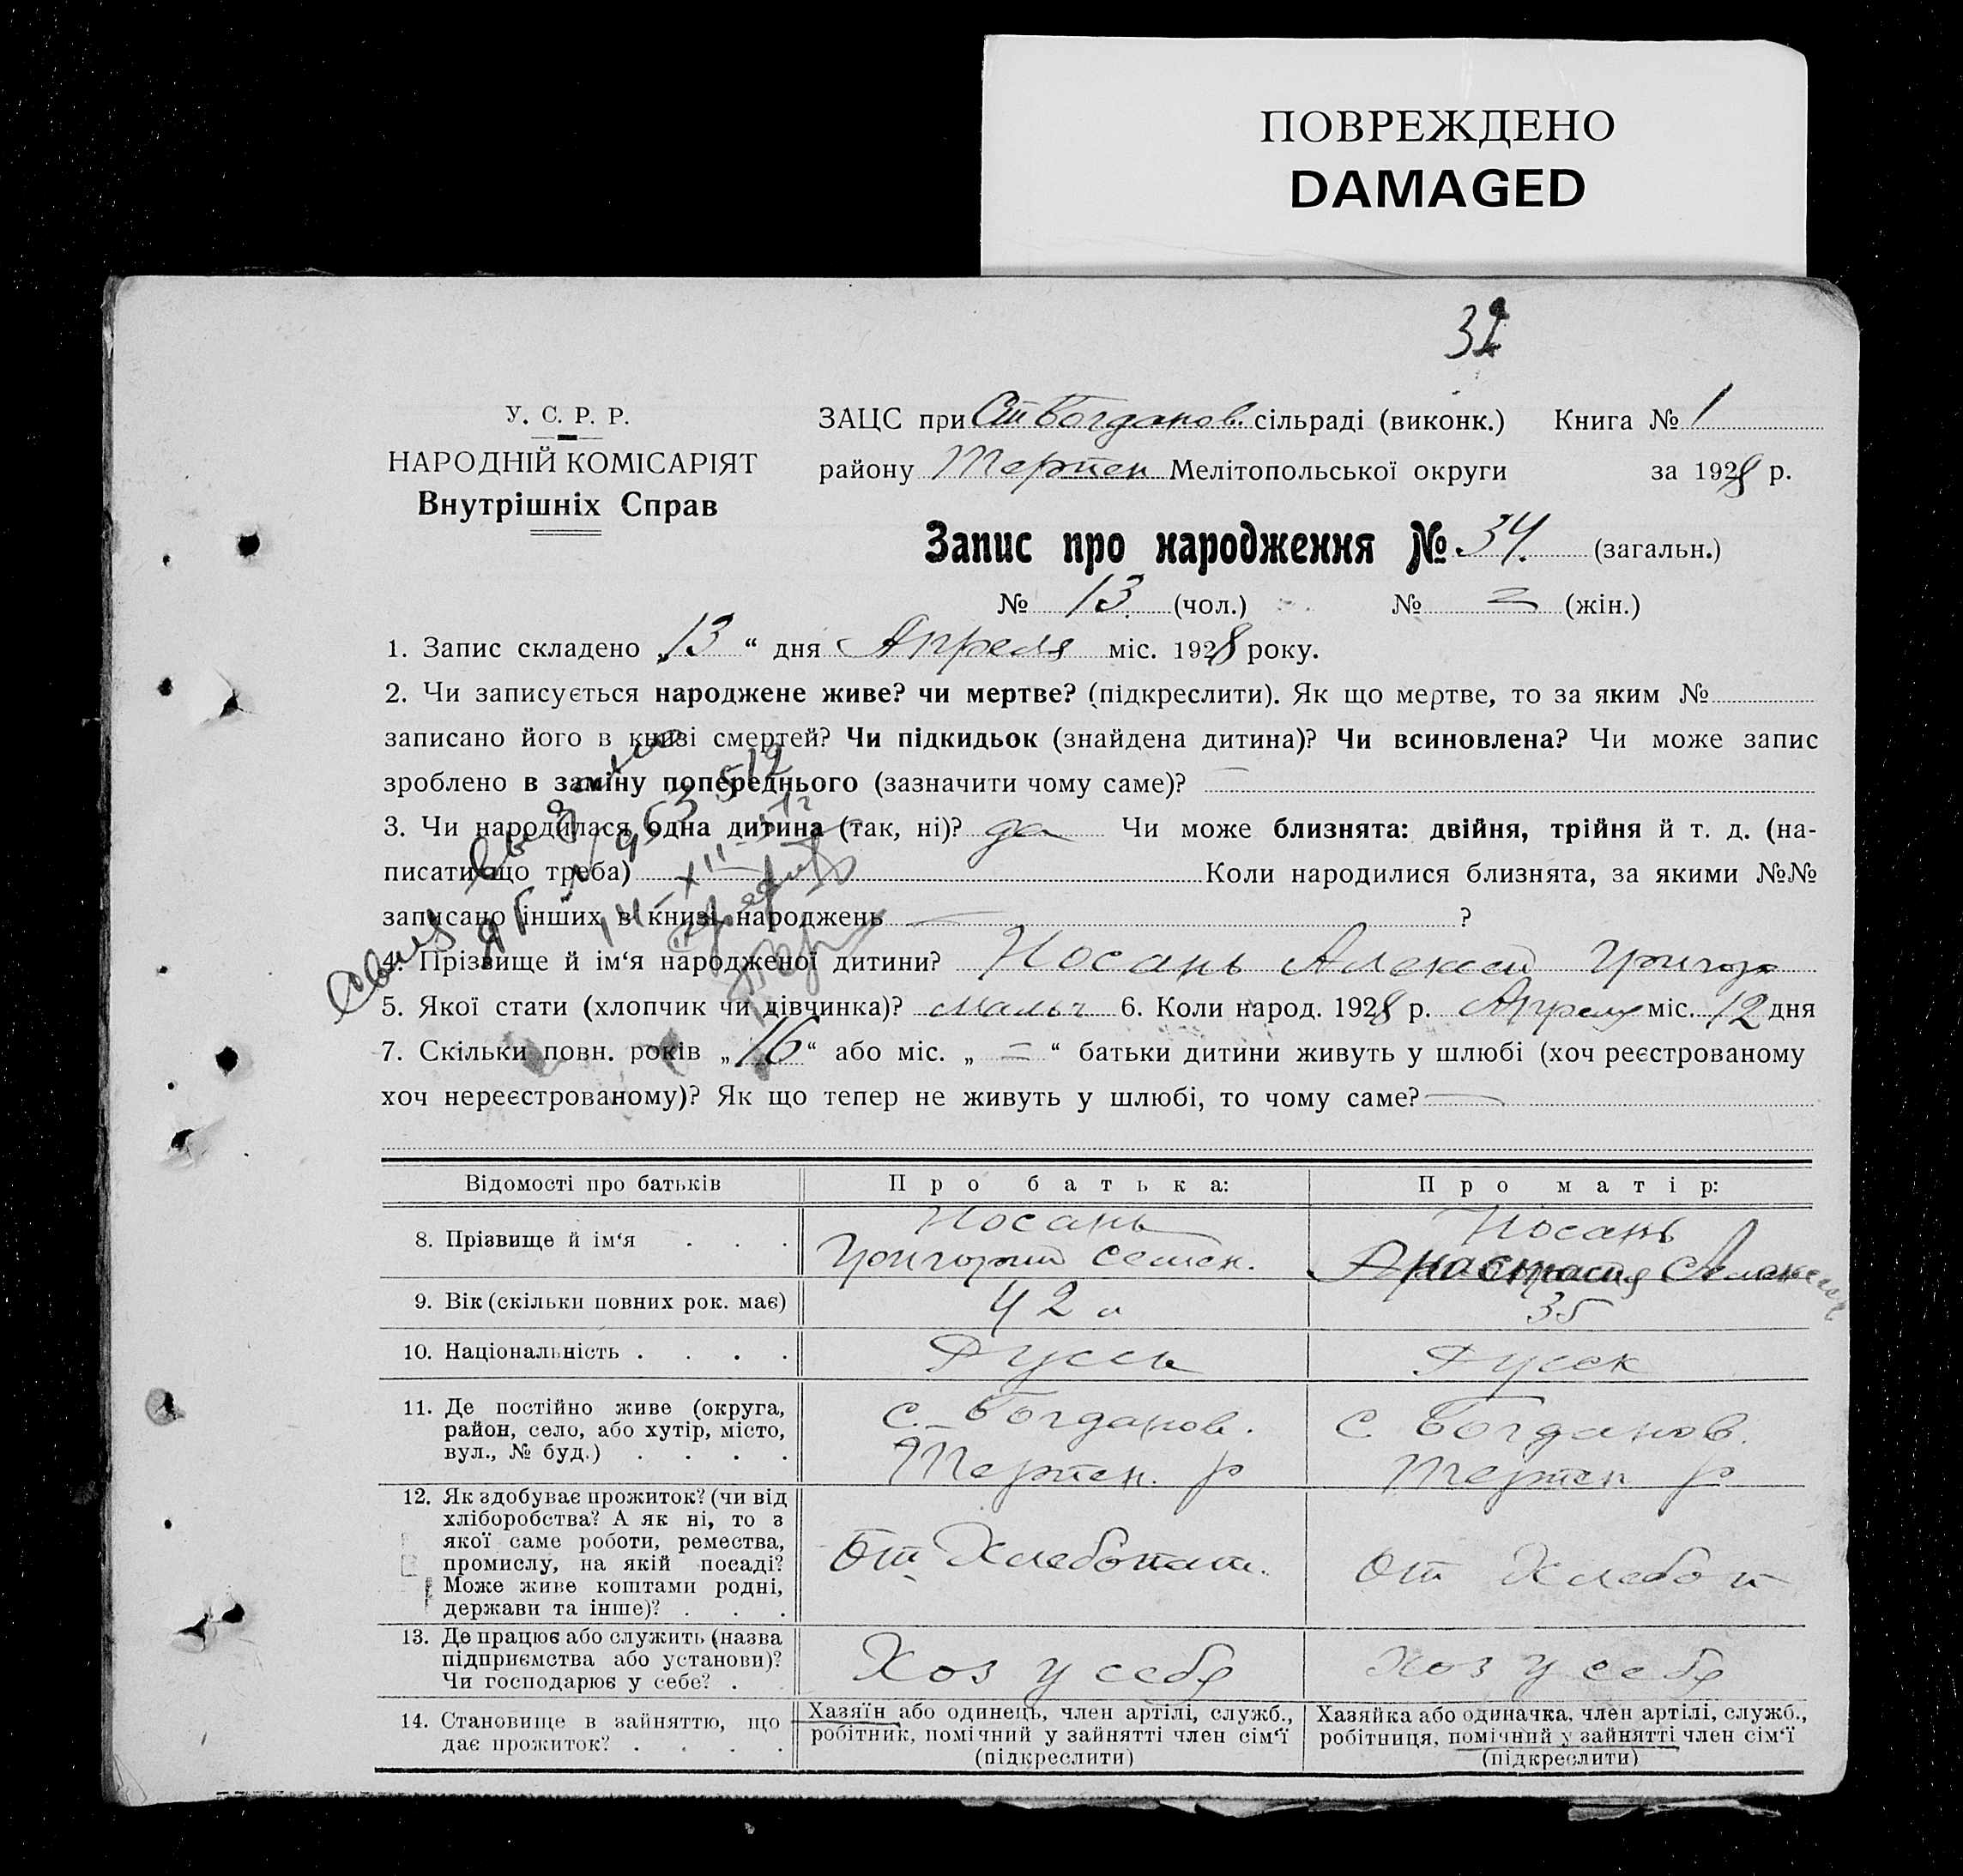 ПОВРЕЖДЕНО
DAMAGED
32
У. С. Р. Р.
НАРОДНІЙ КОМІСАРІЯТ
Внутрішніх Справ
ЗАЦС при Ст Богданов. сільраді (виконк.) Книга № 1
району Терпен Мелітопольської округи за 1928 р.
Запис про народження № 34. (загальн.)
№ 13 (чол.) № = (жін.)
1. Запис складено „13“ дня Апреля міс. 1928 року.
2. Чи записується народжене живе? чи мертве? (підкреслити). Як що мертве, то за яким №
записано його в книзі смертей? Чи підкидьок (знайдена дитина)? Чи всиновлена? Чи може запис
зроблено в заміну попереднього (зазначити чому саме)? —
3. Чи народилася одна дитина (так, ні)? да Чи може близнята: двійня, трійня й т. д. (на-
писати що треба) Коли народилися близнята, за якими №№
записано інших в книзі народжень — ?
4. Прізвище й ім‘я народженої дитини? Носань Алексей Григор
5. Якої стати (хлопчик чи дівчинка)? мальч 6. Коли народ. 1928 р. Апреля міс. 12 дня
7. Скільки повн. років „16“ або міс. „=“ батьки дитини живуть у шлюбі (хоч реєстрованому
хоч нереєстрованому)? Як що тепер не живуть у шлюбі, то чому саме? —
Відомості про батьків Про батька: Про матір:
8. Прізвище й ім‘я . . . Носань Григорий Семен. Носань Анастасия Алексеев
9. Вік (скільки повних рок. має) 42 35
10. Національність . . . . Русск Русск
11. Де постійно живе (округа,
район, село, або хутір, місто,
вул., № буд.) . . . .
с. Богданов.
Терпен. р
с Богданов.
Терпен р
12. Як здобуває прожиток? (чи від
хліборобства? А як ні, то з
якої саме роботи, ремества,
промислу, на якій посаді?
Може живе коштами родні,
держави та інше)? . . .
От Хлебопаш.
От Хлебоп
13. Де працює або служить (назва
підприємства або установи)?
Чи господарює у себе? .
Хоз у себе
Хоз у себе
14. Становище в зайняттю, що
дає прожиток? . . . .
Хазяїн або одинець, член артілі, служб.,
робітник, помічний у зайнятті член сім‘ї
(підкреслити)
Хазяйка або одиначка, член артілі, служб.,
робітниця, помічний у зайнятті член сім‘ї
(підкреслити)